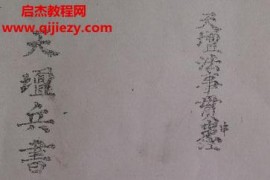 启杰教程网
www.qijiezy.com
天壇法事賞兵科
天壇兵書